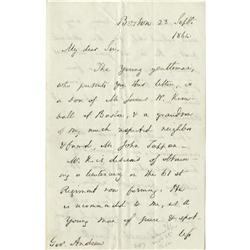 Boston 22 Sept.
1862
My dear Sir,
The young gentleman,
who presents you this letter, is
a son of Mr James W. Kim-
ball of Boston, & a grandson
of my much respected neighbor
& friend, Mr John Tappan.
Mr K. is desirous of obtain-
ing a lieutenancy in the 41 st
Regiment now forming. He
is recommended to me, as a
young man of pure & spot-
less
Gov. Andrew